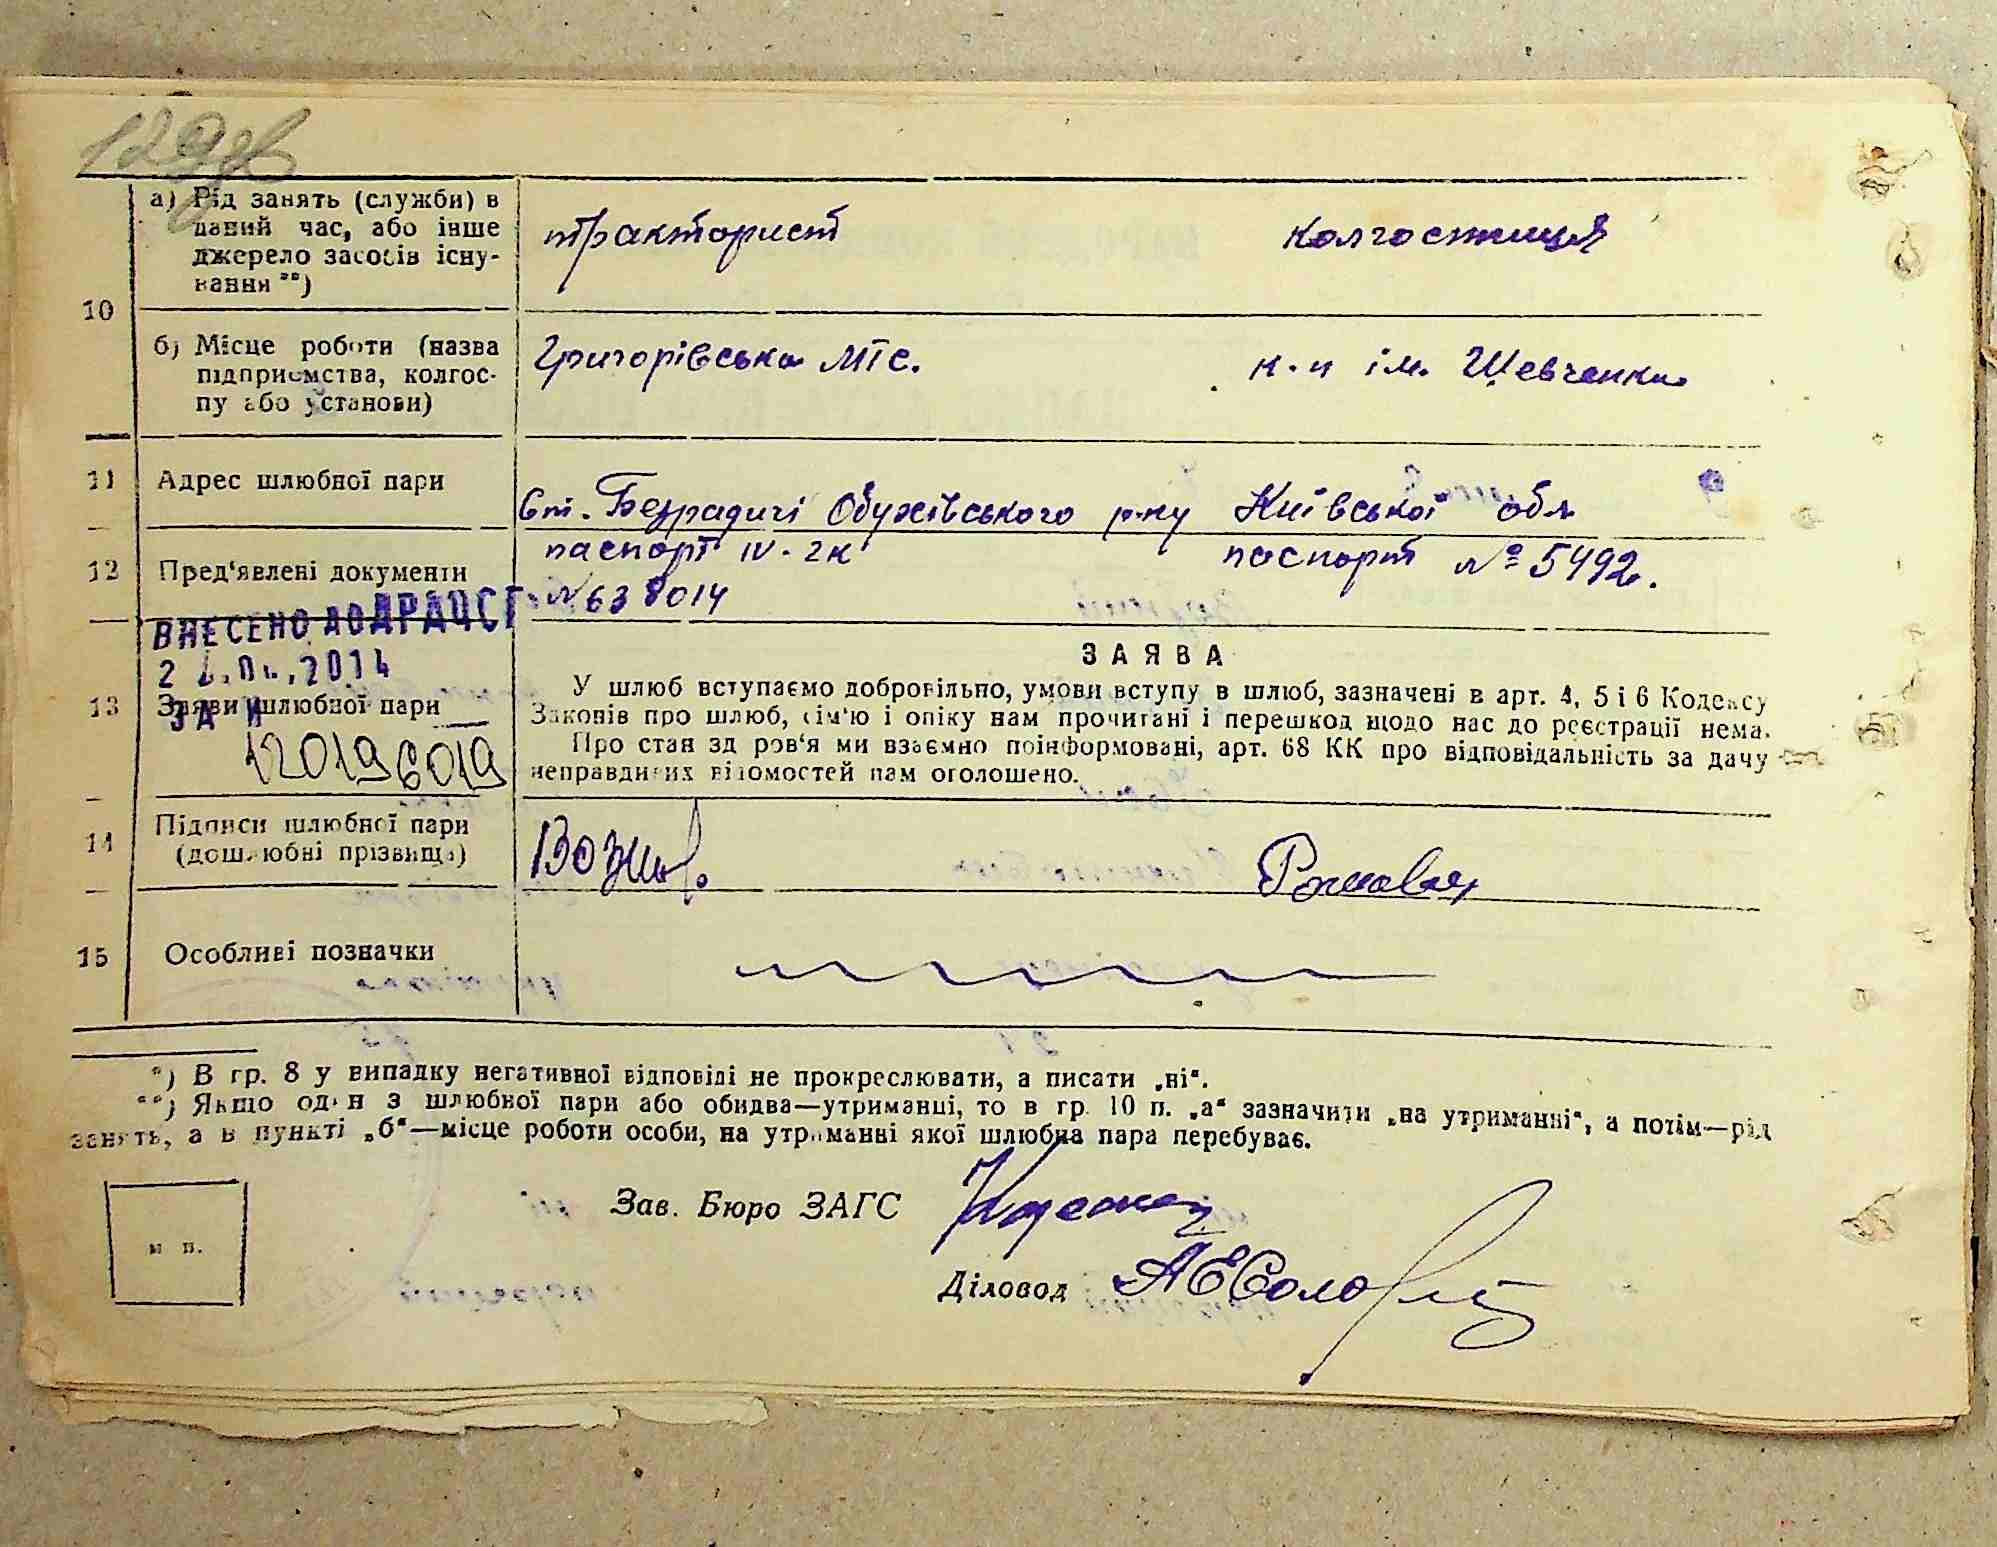 129зв
а) Рід занять (служби) в
даний час, або інше
джерело засобів існу-
вання **)
трактарист
колгоспниця
10
б) Місце роботи (назва
підприємства, колгос-
пу або установи)
Григорівська МТС.
к-п ім. Шевченка
11
Адрес шлюбної пари
Ст. Безрадичі Обухівського р-ну Київської обл
12
Пред'явлені документи
паспорт IV-ЗК
№ 638014
паспорт № 5492.
ВНЕСЕНО ДО ДРАЦСГ
2014
ЗА №
120196019
13
Заяви шлюбної пари
ЗАЯВА
У шлюб вступаємо добровільно, умови вступу в шлюб, зазначені в арт. 4, 5 і 6 Кодексу
Законів про шлюб, сім'ю і опіку нам прочитані і перешкод щодо нас до реєстрації нема.
Про стан здоров'я ми взаємно поінформовані, арт. 68 КК про відповідальність за дачу
неправдивих відомостей нам оголошено.
14
Підписи шлюбної пари
(дошлюбні прізвища)
15
Особливі позначки
*) В гр. 8 у випадку негативної відповіді не прокреслювати, а писати „ні“.
**) Якщо один з шлюбної пари або обидва—утриманці, то в гр. 10 п. „а“ зазначити „на утриманні“, а потім—рід
занять, а в пункті „б“—місце роботи особи, на утриманні якої шлюбна пара перебуває.
м п.
Зав. Бюро ЗАГС
Діловод